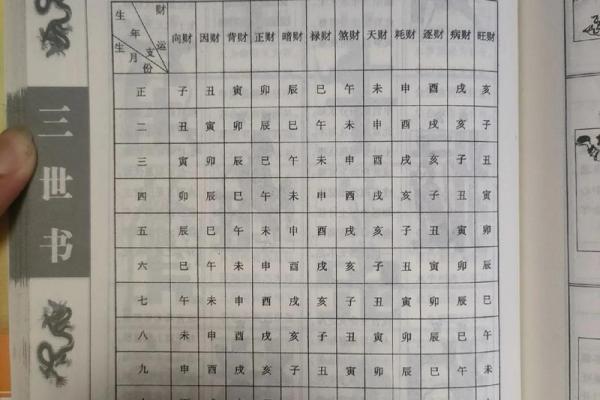 三世书
生年支 财运
生月份
向财 因财 背财 正财 暗财 禄财 煞财 天财 耗财 逐财 病财 旺财
正 子 丑 寅 卯 辰 巳 午 未 申 酉 戌 亥
二 丑 寅 卯 辰 巳 午 未 申 酉 戌 亥 子
三 寅 卯 辰 巳 午 未 申 酉 戌 亥 子 丑
四 卯 辰 巳 午 未 申 酉 戌 亥 子 丑 寅
五 辰 巳 午 未 申 酉 戌 亥 子 丑 寅 卯
六 巳 午 未 申 酉 戌 亥 子 丑 寅 卯 辰
七 午 未 申 酉 戌 亥 子 丑 寅 卯 辰 巳
八 未 申 酉 戌 亥 子 丑 寅 卯 辰 巳 午
九 申 酉 戌 亥 子 丑 寅 卯 辰 巳 午 未